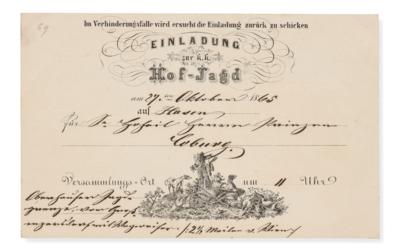 69
Im Verhinderungsfalle wird ersucht die Einladung zurück zu schicken
EINLADUNG
zur k.k.
Hof-Jagd
am 27. ten Oktober 1865
auf Hasen
für Se. Hoheit Herrn Prinzen
Coburg.
Versammlungs-Ort um 11 Uhr
Oberhauser